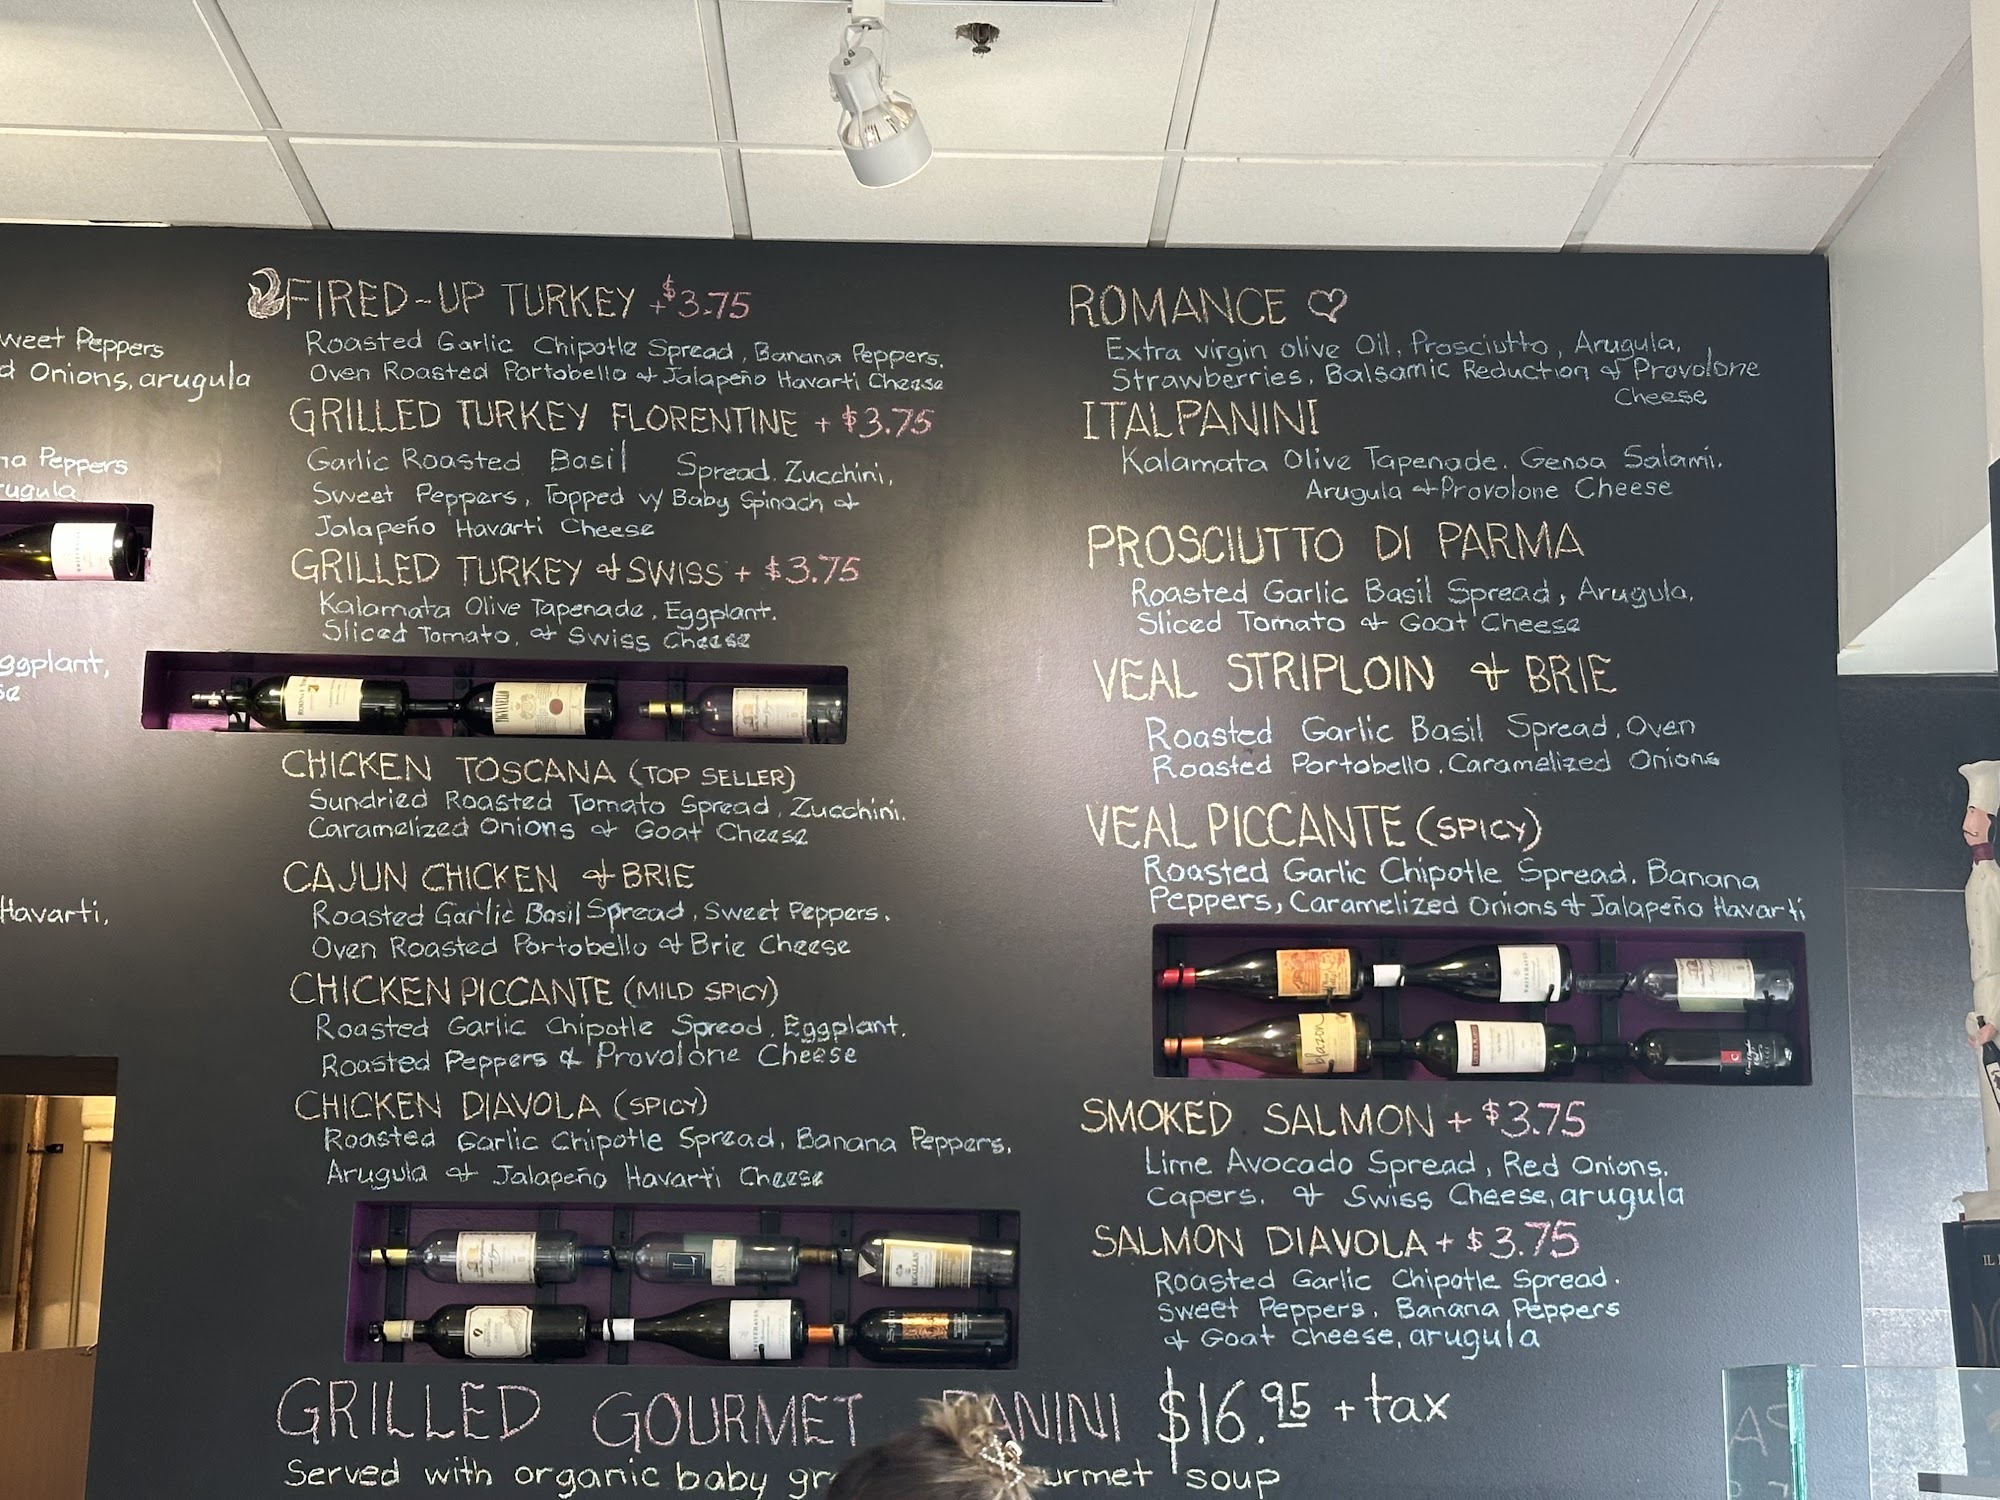 weet Peppers
d Onions, arugula
Peppers
rugula
ggplant,
se
Havarti,
FIRED-UP TURKEY +$3.75
Roasted Garlic Chipotle Spread, Banana Peppers,
Oven Roasted Portobello & Jalapeño Havarti Cheese
GRILLED TURKEY FLORENTINE + $3.75
Garlic Roasted Basil Spread, Zucchini,
Sweet Peppers, Topped w/ Baby Spinach &
Jalapeño Havarti Cheese
GRILLED TURKEY & SWISS + $3.75
Kalamata Olive Tapenade, Eggplant,
Sliced Tomato, & Swiss Cheese
CHICKEN TOSCANA (TOP SELLER)
Sundried Roasted Tomato Spread, Zucchini,
Caramelized Onions & Goat Cheese
CAJUN CHICKEN & BRIE
Roasted Garlic Basil Spread, Sweet Peppers,
Oven Roasted Portobello & Brie Cheese
CHICKEN PICCANTE (MILD SPICY)
Roasted Garlic Chipotle Spread, Eggplant,
Roasted Peppers & Provolone Cheese
CHICKEN DIAVOLA (SPICY)
Roasted Garlic Chipotle Spread, Banana Peppers,
Arugula & Jalapeño Havarti Cheese
ROMANCE
Extra virgin olive Oil, Prosciutto, Arugula,
Strawberries, Balsamic Reduction & Provolone
Cheese
ITALPANINI
Kalamata Olive Tapenade, Genoa Salami,
Arugula & Provolone Cheese
PROSCIUTTO DI PARMA
Roasted Garlic Basil Spread, Arugula,
Sliced Tomato & Goat Cheese
VEAL STRIPLOIN & BRIE
Roasted Garlic Basil Spread, Oven
Roasted Portobello, Caramelized Onions
VEAL PICCANTE (SPICY)
Roasted Garlic Chipotle Spread, Banana
Peppers, Caramelized Onions & Jalapeño Havarti
blazon
SMOKED SALMON + $3.75
Lime Avocado Spread, Red Onions,
Capers, & Swiss Cheese, arugula
SALMON DIAVOLA + $3.75
Roasted Garlic Chipotle Spread,
Sweet Peppers, Banana Peppers
& Goat Cheese, arugula
GRILLED GOURMET PANINI $16.95 + tax
Served with organic baby gr urmet soup
IL